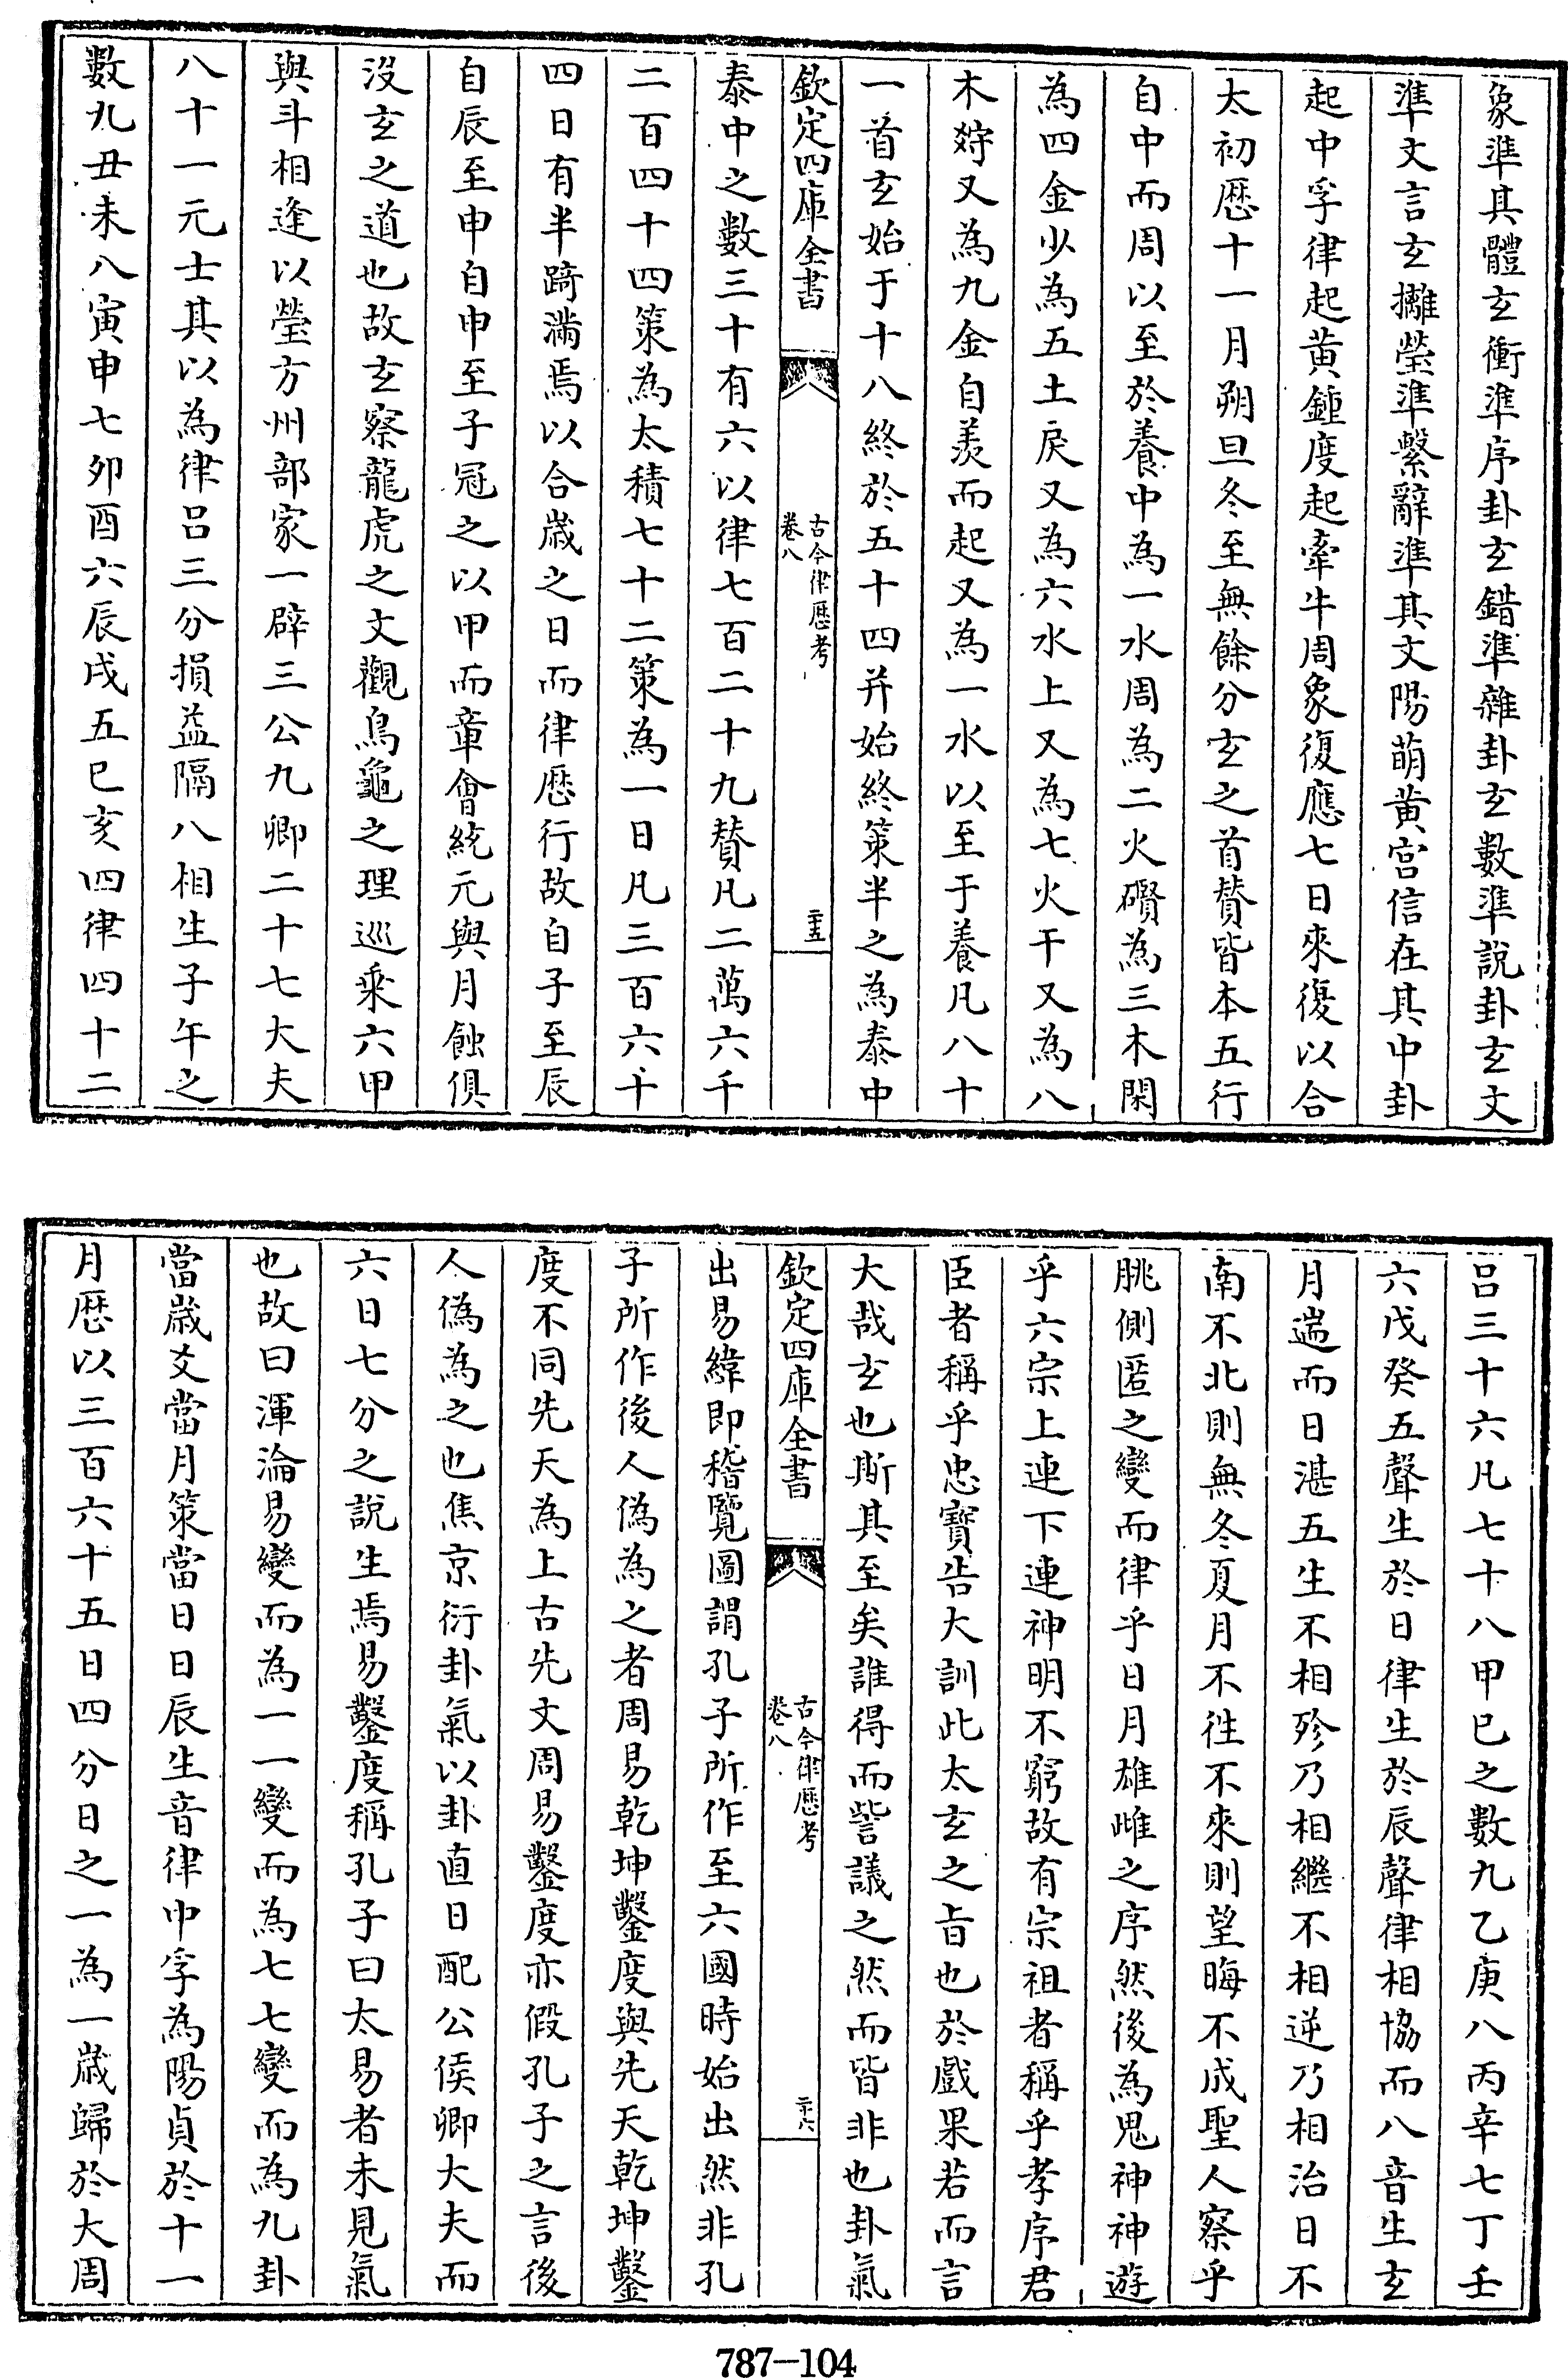 象準其體玄衝準序卦玄錯準雜卦玄數準說卦玄文
準文言玄攡瑩準繫辭準其文陽萌黄宫信在其中卦
起中孚律起黄鍾度起牽牛周象復應七日來復以合
太初歴十一月朔旦冬至無餘分玄之首賛皆本五行
自中而周以至於養中為一水周為二火礥為三木閑
為四金少為五土戾又為六水上又為七火干又為八
木𥎊又為九金自羨而起又為一水以至于養凡八十
一首玄始于十八終於五十四并始終策半之為泰中
欽定四庫全書
古今律歴考
卷八
二十五
泰中之數三十有六以律七百二十九賛凡二萬六千
二百四十四策為太積七十二策為一日凡三百六十
四日有半踦滿焉以合歲之日而律歴行故自子至辰
自辰至申自申至子冠之以甲而章會統元與月蝕俱
沒玄之道也故玄察龍虎之文觀鳥龜之理巡乗六甲
與斗相逢以瑩方州部家一辟三公九卿二十七大夫
八十一元士其以為律吕三分損益隔八相生子午之
數九丑未八寅申七卯酉六辰戌五巳亥四律四十二
吕三十六凡七十八甲巳之數九乙庚八丙辛七丁壬
六戊癸五聲生於日律生於辰聲律相協而八音生玄
月遄而日湛五生不相殄乃相繼不相逆乃相治日不
南不北則無冬夏月不徃不來則望晦不成聖人察乎
朓側匿之變而律乎日月雄雌之序然後為鬼神神遊
乎六宗上連下連神明不窮故有宗祖者稱乎孝序君
臣者稱乎忠寳告大訓此太玄之㫖也於戲果若而言
大哉玄也斯其至矣誰得而訾議之然而皆非也卦氣
欽定四庫全書
古今律歴考
卷八
二十六
出易緯即稽覽圖謂孔子所作至六國時始出然非孔
子所作後人偽為之者周易乾坤鑿度與先天乾坤鑿
度不同先天為上古先文周易鑿度亦假孔子之言後
人偽為之也焦京衍卦氣以卦直日配公侯卿大夫而
六日七分之說生焉易鑿度稱孔子曰太易者未見氣
也故曰渾淪易變而為一一變而為七七變而為九卦
當歲爻當月策當日日辰生音律中孚為陽貞於十一
月歴以三百六十五日四分日之一為一歲歸於大周
787-104